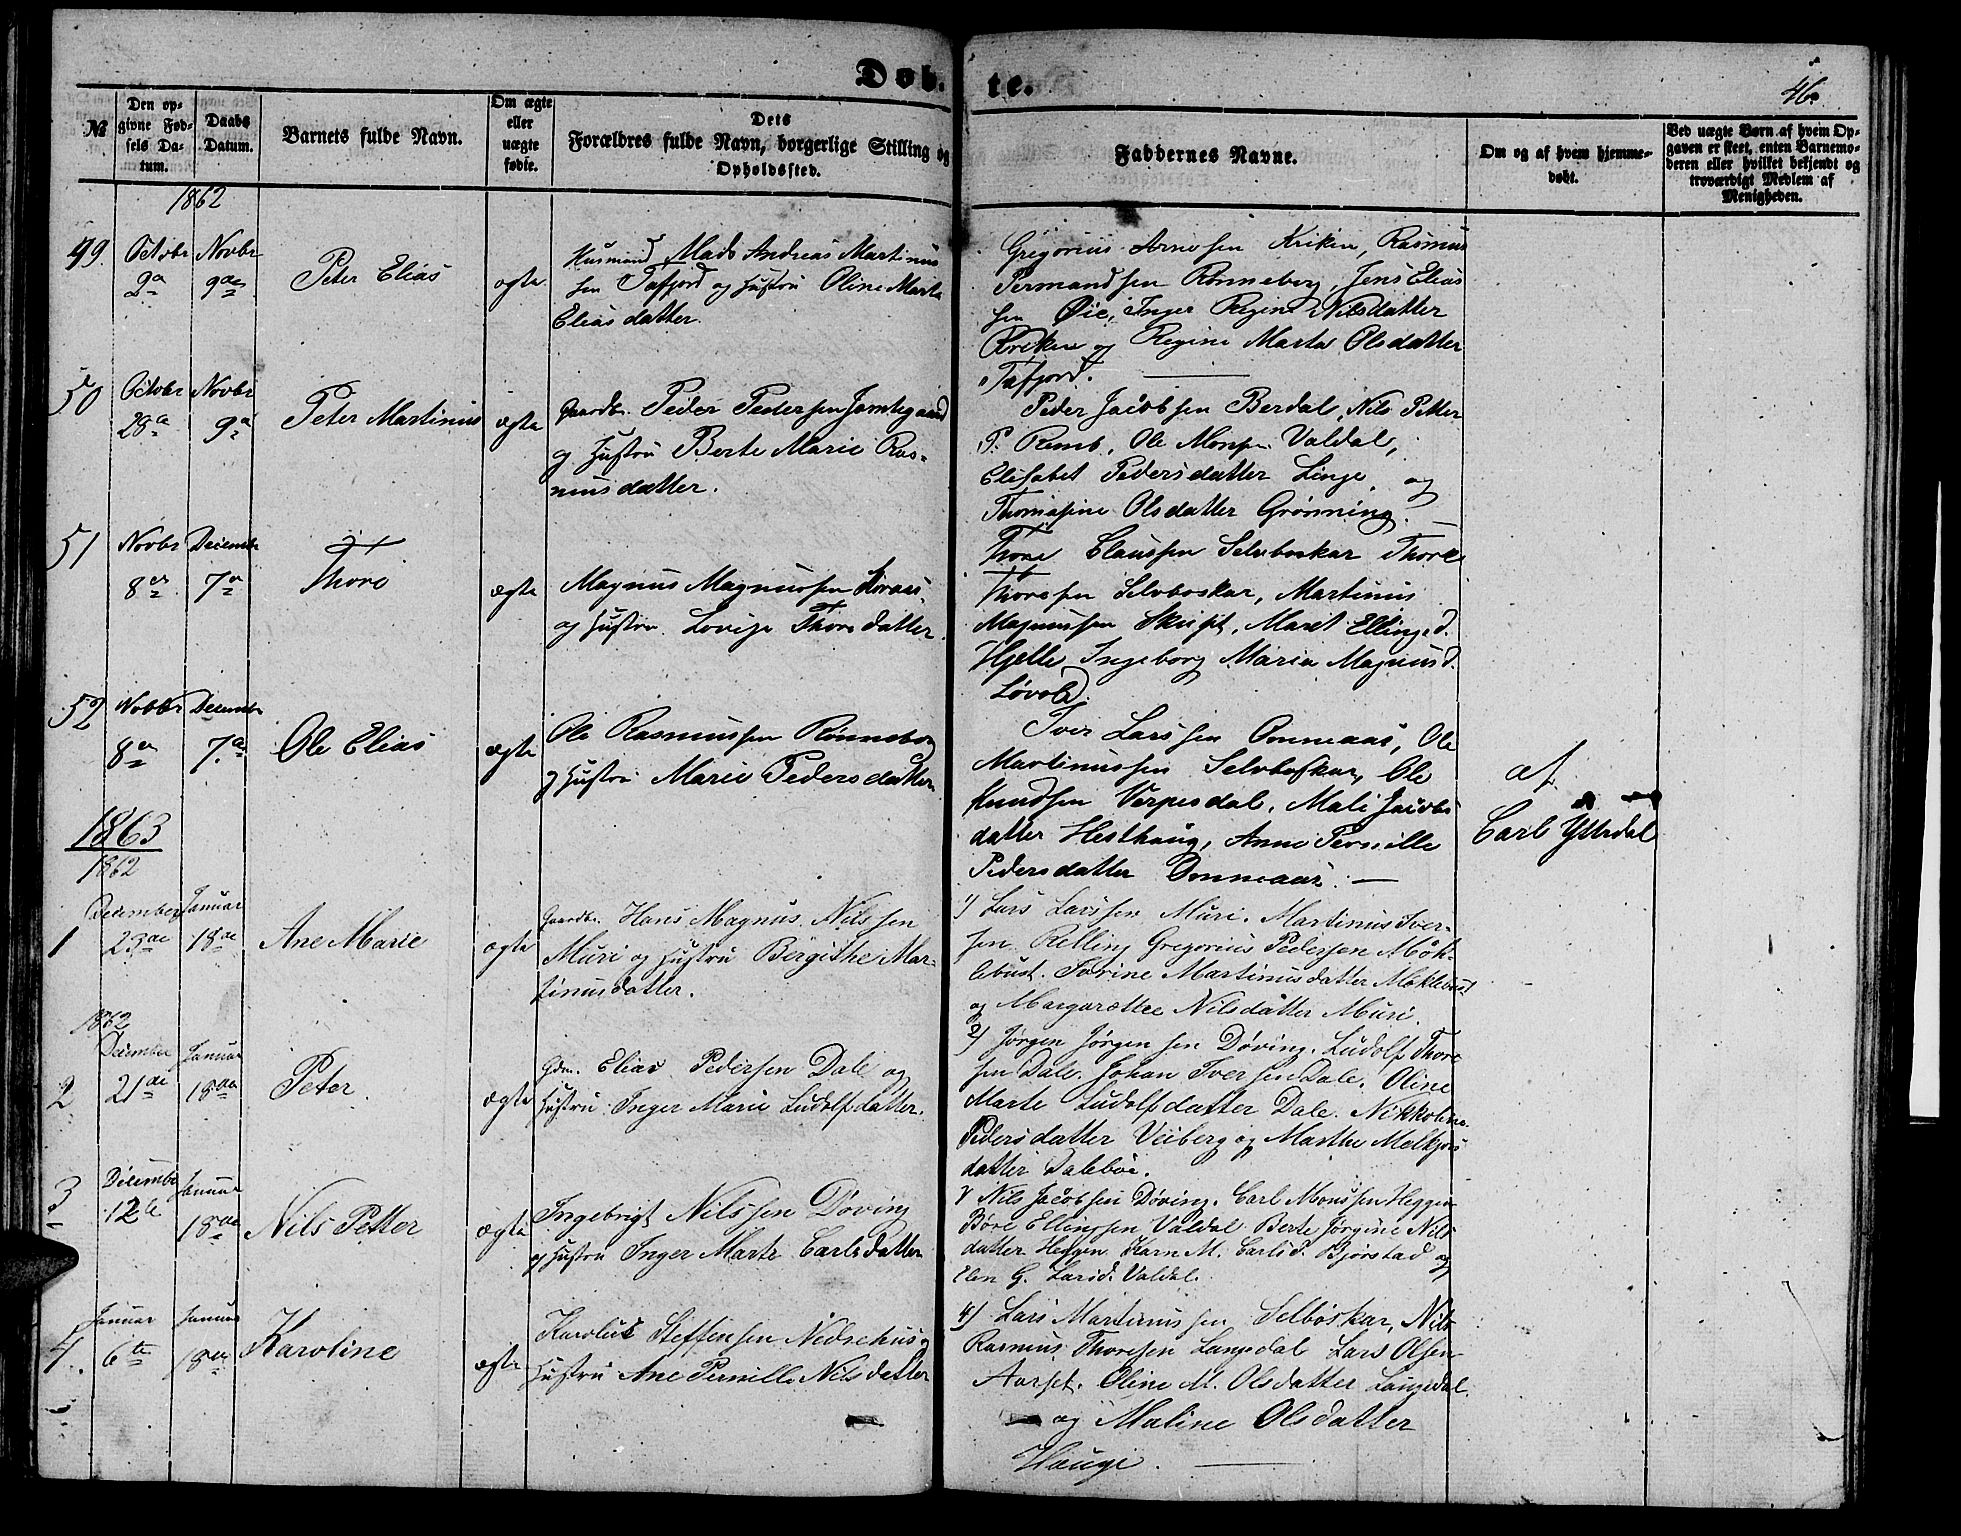 Døb-
te.
46.
№
Den op-
givne Fød-
sels Da-
tum.
Daabs
Datum.
Barnets fulde Navn.
Om ægte
eller
uægte
fødte.
Dets
Forældres fulde Navn, borgerlige Stilling og
Opholdssted.
Faddernes Navne.
Om og af hvem hjemme-
døbt.
Ved uægte Børn af hvem Op-
gaven er skeet, enten Barnemo-
deren eller hvilket bekjendt og
troværdigt Medlem af
Menigheden.
1862
49. Octobr Novbr
9a 9de
Peter Elias
ægte
Husmand Mads Andreas Martinus
sen Tafjord og Hustru Oline Marta
Eliasdatter.
Gregorius Arnesen Kriken, Rasmus
Permandsen Rønneberg, Jens Elias
sen Øie, Inger Regine Nilsdatter
Kriken og Regine Marta Olsdatter
Tafjord.
50 Octobr Novbr
28a 9a
Peter Martinus
ægte
Gaardbr. Peder Pedersen Jamtegaard
og Hustru Berte Marie Ras-
musdatter.
Peder Jacobsen Berdal, Nils Petter
P. Remb, Ole Monsen Valdal,
Elisabet Pedersdatter Linge, og
Thomasine Olsdatter Grønning.
51 Novbr Decembr
8de 7de
Thore
ægte
Magnus Magnussen
og Hustru Lovise Thoresdatter.
Thore Claussen Selvboskar Thore
Thoresen Selvboskar, Martinus
Magnussen Skuset, Maret Ellingsd.
Hjelle, Ingeborg Maria Magnusd.
Løvold.
52 Novbr Decembr
8de 7de
Ole Elias
ægte
Ole Rasmussen Rønneberg
og Hustru Marie Pedersdatter.
Iver Larssen Omenaas, Ole
Martinussen Selvboskar, Ole
Knudsen Verpesdal, Mali Jacobs
datter Hesthaug, Anne Pernille
Pedersdatter Omenaas. —
af
Carl Ytterdal
1863
1862
1 December Januar
23de 18de
Ane Marie
ægte
Gaardbr. Hans Magnus Nilssen
Muri og Hustru Bergithe Mar-
tinusdatter.
1) Lars Larssen Muri. Martinus Iver-
sen Relling Gregorius Pedersen Møk-
lebust. Sevrine Martinusdatter Møklebust
og Margarettee Nilsdatter Muri.
1862
2 December Januar
21de 18de
Peter.
ægte
Gdm. Elias Pedersen Dale og
Hustru Inger Marie Ludolfsdatter.
2) Jørgen Jørgensen Døving. Ludolf Thore
sen Dale. Johan Iversen Dale. Oline
Marte Ludolfsdatter Dale. Nikkoline
Pedersdatter Veiberg og Marthe Melkjørs
datter Dalebøe.
3 December Januar
12te 18de
Nils Petter
ægte
Ingebrigt Nilssen Døving
og Hustru Inger Marte Carlsdatter
Nils Jacobsen Døving. Carl Monssen Heggen
Børe Ellingsen Valdal Berte Jørgine Nils
datter Heggen Karn M. Carlsd. Bjørstad og
Elen G. Larsd. Valdal.
4. Januar Januar
6te 18de
Karoline
ægte
Karolus Steffensen Nedrehus og
Hustru Ane Pernille Nilsdatter
4) Lars Martinussen Selboskar, Nils
Rasmus Thoresen Langdal Lars Olsen
Aarset. Oline M. Olsdatter Langdal.
og Maline Olsdatter
Hauge.